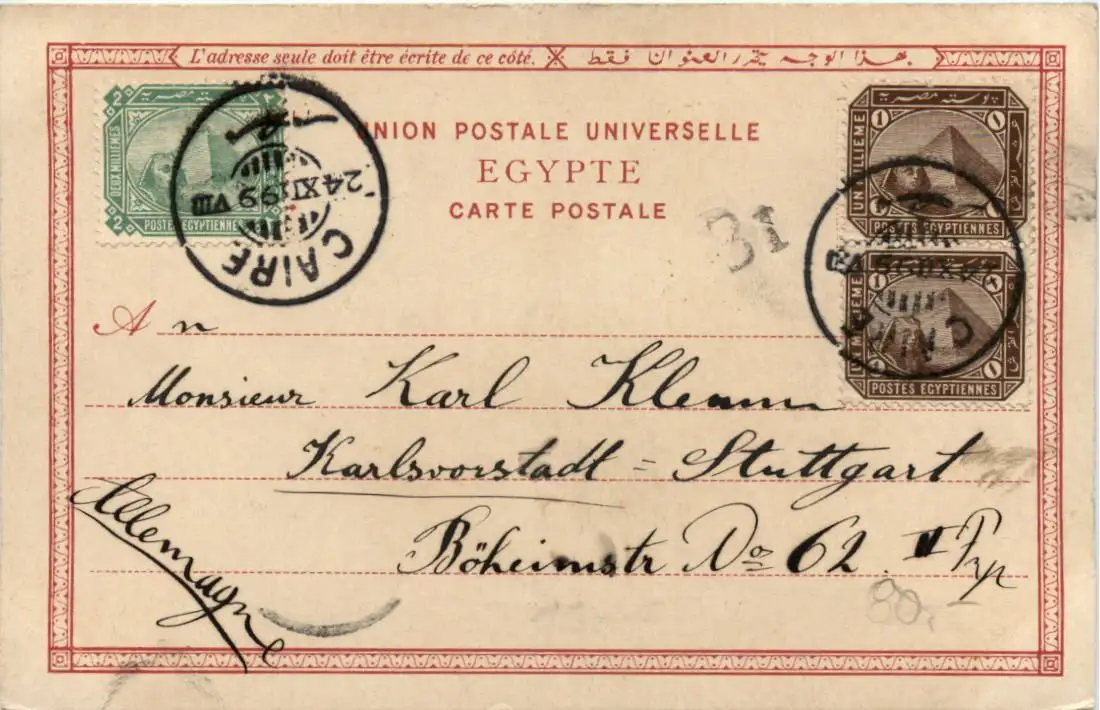 L'adresse seule doit être écrite de ce côté.
بهذا الوجه يتحرر العنوان فقط
UNION POSTALE UNIVERSELLE
EGYPTE
CARTE POSTALE
2 2
بوسته مصرية
DEUX MILLIEMES
2
POSTES EGYPTIENNES
CAIRE
24 XI 99 VIII
1 ١
بوسته مصرية
UN MILLIEME
1 ١
POSTES EGYPTIENNES
1 ١
UN MILLIEME
1 ١
POSTES EGYPTIENNES
CAIRE
31
An
Monsieur Karl Klemm
Karlsvorstadt = Stuttgart
Böheimstr No 62 II Trp
Allemagne
80.-